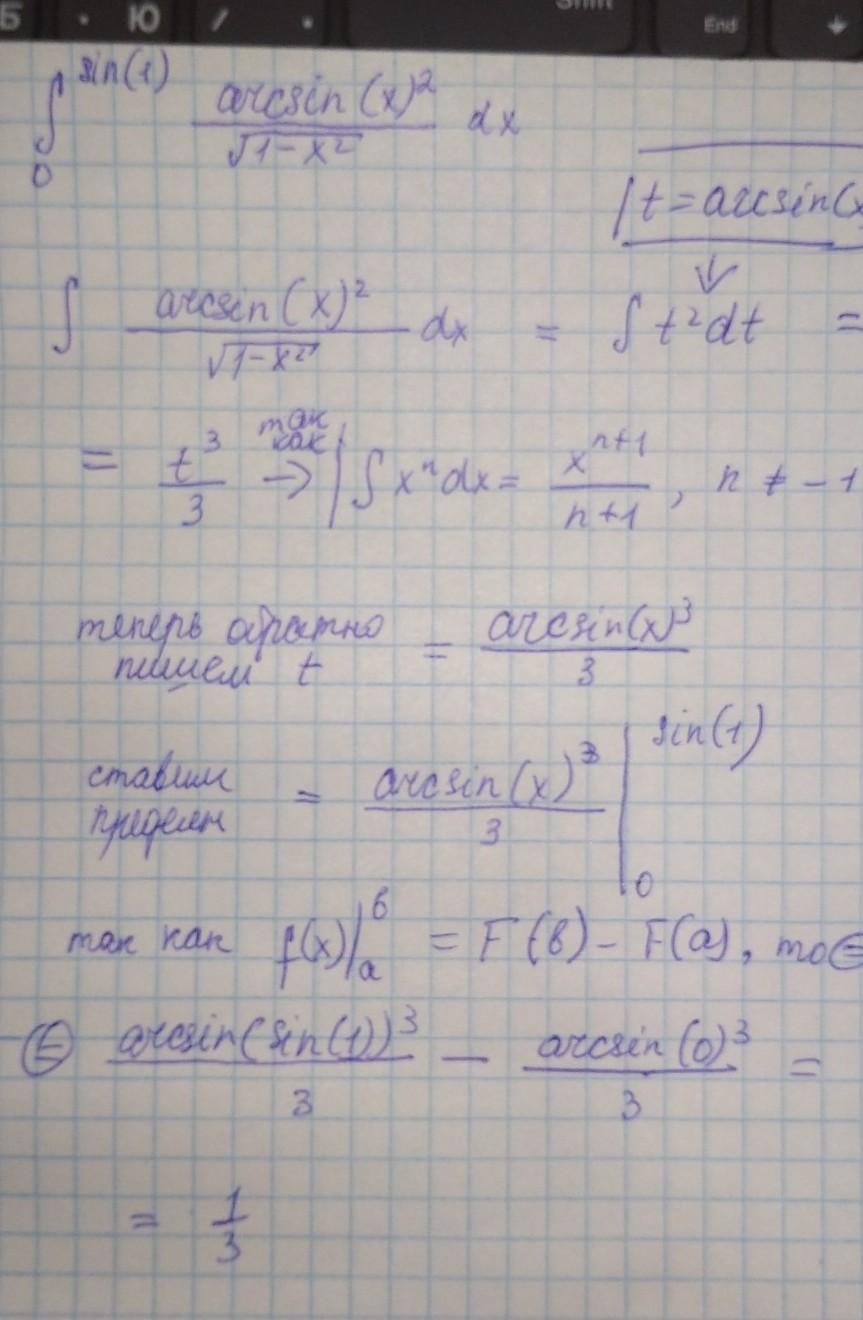 Б Ю / . Shift End
∫₀^sin(1) arcsin(x)²/√(1-x²) dx
| t = arcsin(x
∫ arcsin(x)²/√(1-x²) dx = ∫ t²dt =
= t³/3 так как → | ∫ xⁿdx = xⁿ⁺¹/(n+1), n ≠ -1
теперь обратно = arcsin(x)³/3
пишем t
ставим = arcsin(x)³/3 |₀^sin(1)
пределы
так как f(x)|ₐᵇ = F(b) - F(a), то ⊜
⊜ arcsin(sin(1))³/3 - arcsin(0)³/3 =
= 1/3